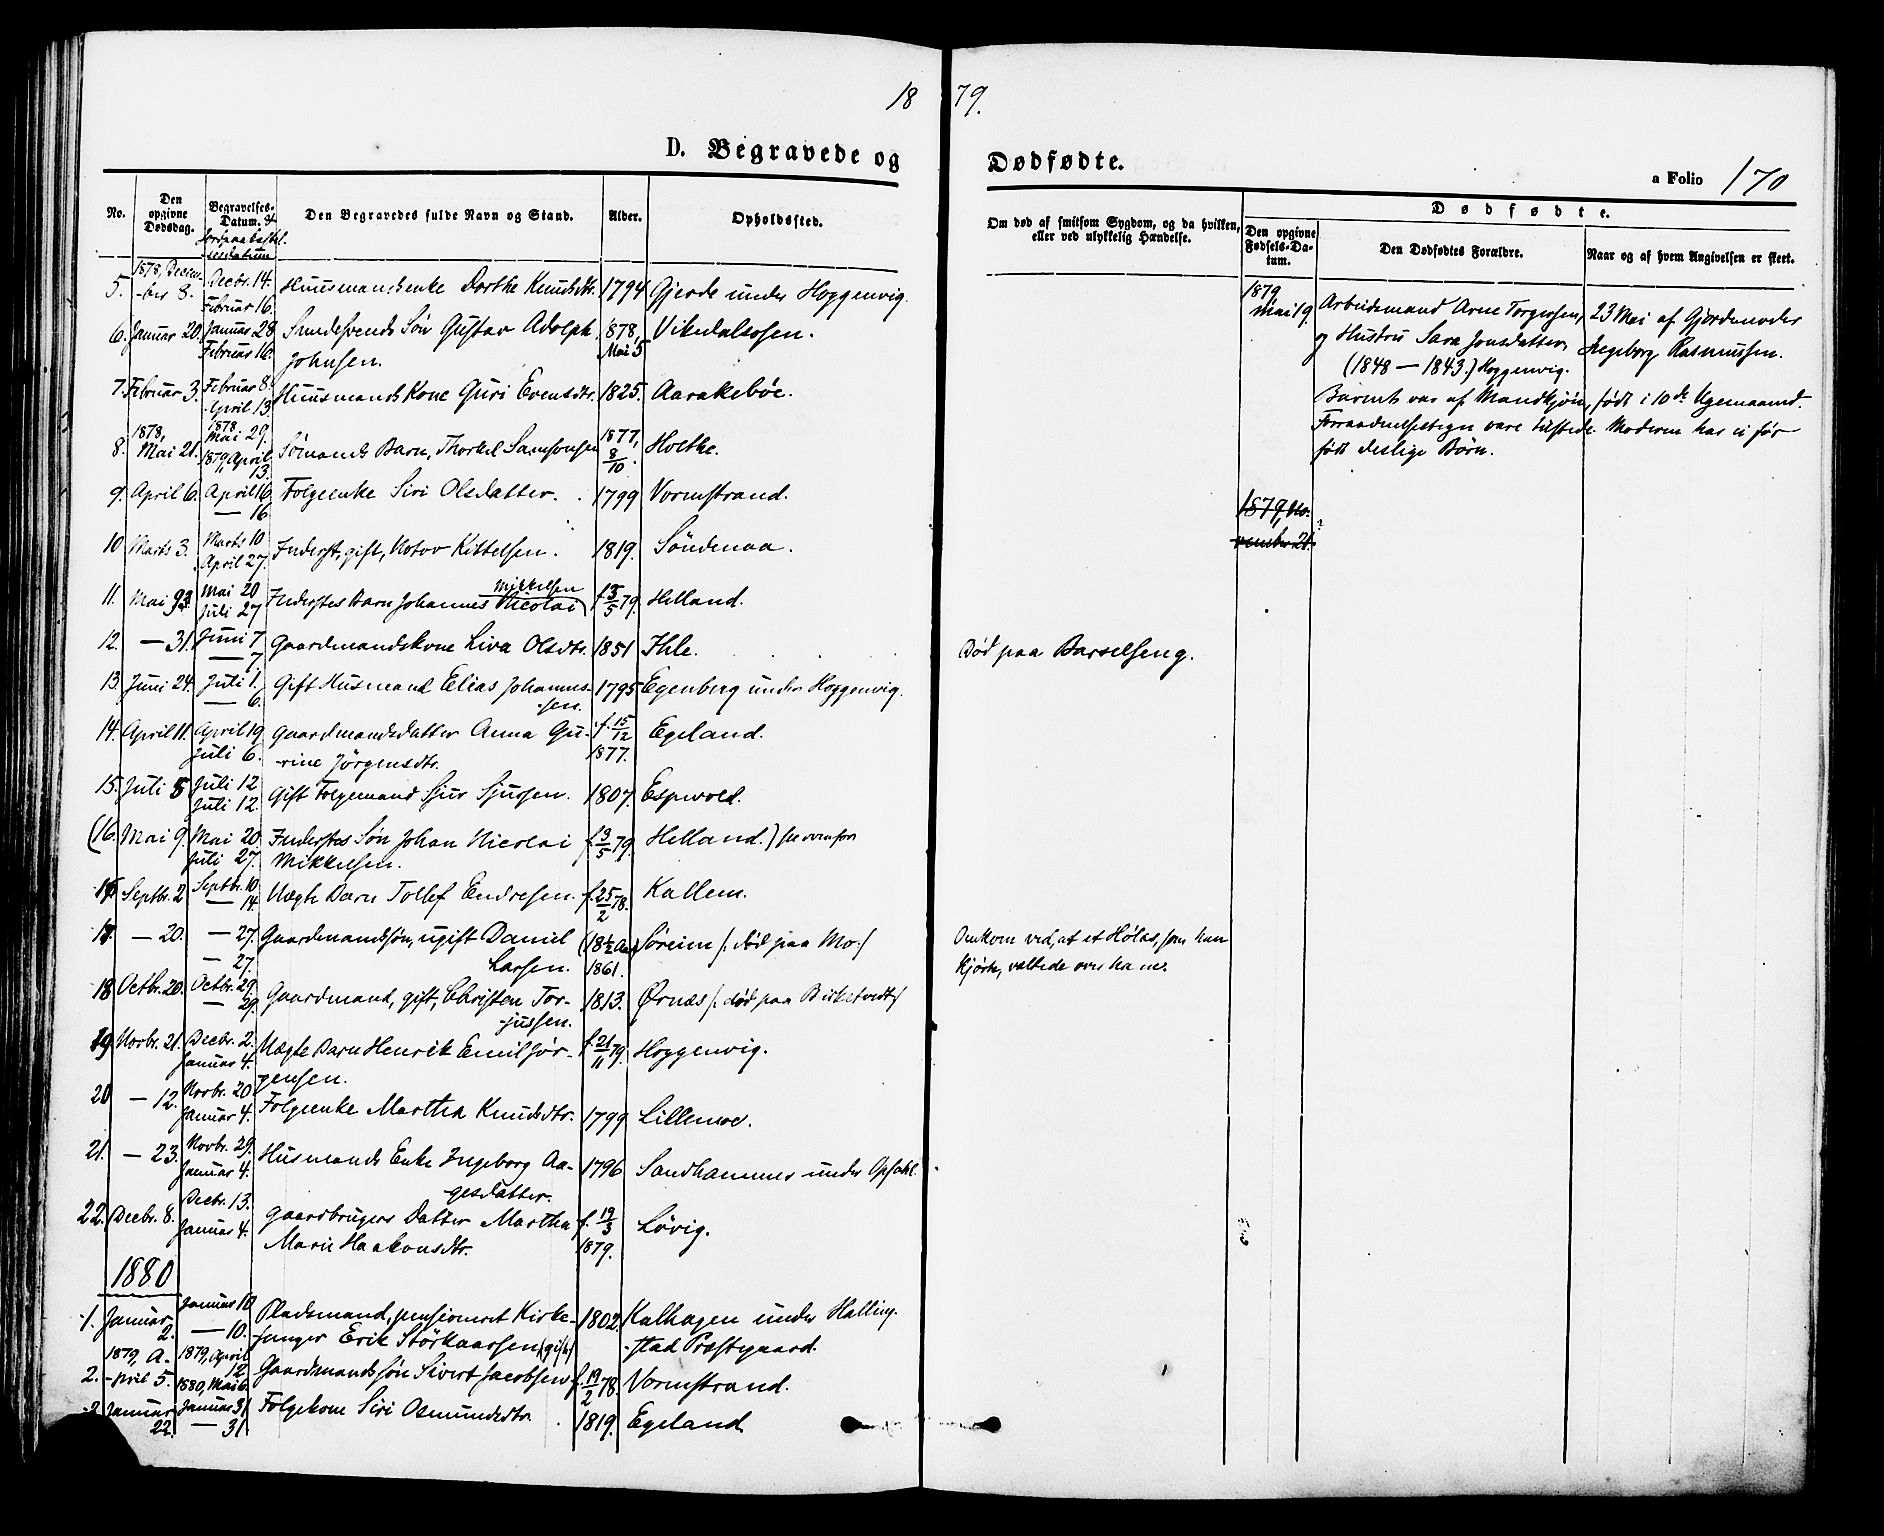 18 79.
D. Begravede og Dødfødte.
a Folio 170
No.
Den opgivne Dødsdag.
Begravelses-Datum. &
Jordpaakastelsesdatum
Den Begravedes fulde Navn og Stand.
Alder.
Opholdssted.
Om død af smitsom Sygdom, og da hvilken,
eller ved ulykkelig Hændelse.
Dødfødte.
Den opgivne Fødsels-Datum.
Den Dødfødtes Forældre.
Naar og af hvem Angivelsen er skeet.
5. 1878, Decem-ber 8. Decbr. 14. Februar 16. Huusmandsenke Dorthe Knudsdtr. 1794 Gjerde under Hoggenvig.
6. Januar 20. Januar 28. Februar 16. Gustav Adolph Johnsen. 1878, Mai 5 Vikedalsosen.
7. Februar 3. Februar 8. April 13 Huusmands Kone Guri Evensdtr. 1825. Aarakebøe.
8. 1878, Mai 21. 1878 Mai 29. 1879, April 13. Sømands Barn, Thorkel Samsonsen 1877, 8/10. Holthe.
9. April 6. April 16 — 16 Folgeenke Siri Olsdatter. 1799 Vormstrand.
10 Marts 3. Marts 10 April 27. Inderst, gift, Notov Kittelsen. 1819. Søndenaa.
11. Mai 9 Mai 20 Juli 27 Inderstes Barn Johannes Nicolai Mikkelsen f. 3/5 79. Helland.
12. — 31. Juni 7 — 7. Gaardmandskone Liva Olsdtr. 1851 Ihle. Død paa Barselseng.
13. Juni 24. Juli 1. — 6. Gift Husmand Elias Johannes-sen. 1795 Egenberg under Hoggenvig.
14. April 11. April 19 Juli 6. Gaardmandsdatter Anna Gu-rine Jörgensdtr. f. 15/12 1877. Egeland.
15. Juli 5 Juli 12 Juli 12. Gift Folgemand Sjur Sjursen. 1807. Espevold.
(16. Mai 9. Mai 20 Juli 27. Inderstes Søn Johan Nicolai Mikkelsen. f. 3/5 79. Helland.) see ovenfor
16 Septbr. 2 Septbr. 10 — 14. Uægte Barn Tollef Endresen. f. 25/2 78. Kallem.
17. — 20. — 27. — 27. Gaardmandssøn, ugift Daniel Larsen. (18½ Aar) 1861. Søreim /: død paa Mo :/ Omkom ved, at et Hølas, som han
kjørte, væltede over ham.
18 Octbr. 20. Octbr. 29. — 29. Gaardmand, gift, Christen Tor-jussen. 1813. Ørnæs /: død paa Birketvedt :/
19 Novbr. 21. Decbr. 2. Januar 4. Uægte Barn Henrik Emil Jør-gensen. f. 21/11 79. Hoggenvig.
20 — 12. Novbr. 20 Januar 4. Folgeenke Martha Knudsdtr. 1799 Lillemoe.
21. — 23. Novbr. 29. Januar 4. Husmands Enke Ingeborg Aa-gesdatter. 1796 Sandhammer under Opsahl.
22. Decbr. 8. Decbr. 13. Januar 4. Gaardbrugers Datter Martha Marie Haakonsdtr. f. 19/3 1879. Løvig.
1880
1. Januar 2. Januar 10 — 10. Pladsmand, pensioneret Kirke-sanger Erik Störkaarsen (gift) 1802. Kalhagen under Halling-stad Præstegaard.
2. 1879, A-pril 5. 1879, April 12 1880, Mai 6. Gaardmandssøn Sivert Jacobsen f. 19/2 78. Vormstrand.
3 Januar 22. Januar 31. — 31. Folgekone Siri Osmundsdtr. 1819. Egeland
1879 Mai 19. Arbeidsmand Arne Torgersen, 23 Mai af Gjordemoder
og Hustru Sara Jonsdatter, Ingeborg Rasmussen.
(1848 — 1843.) Hoggenvig.
Barnet var af Mandkjøn, født i 10de Ugemaaned.
Forraadnelsestegn vare tilstede. Moderen har ei før
født deslige Børn.
1879, No-vember 21.